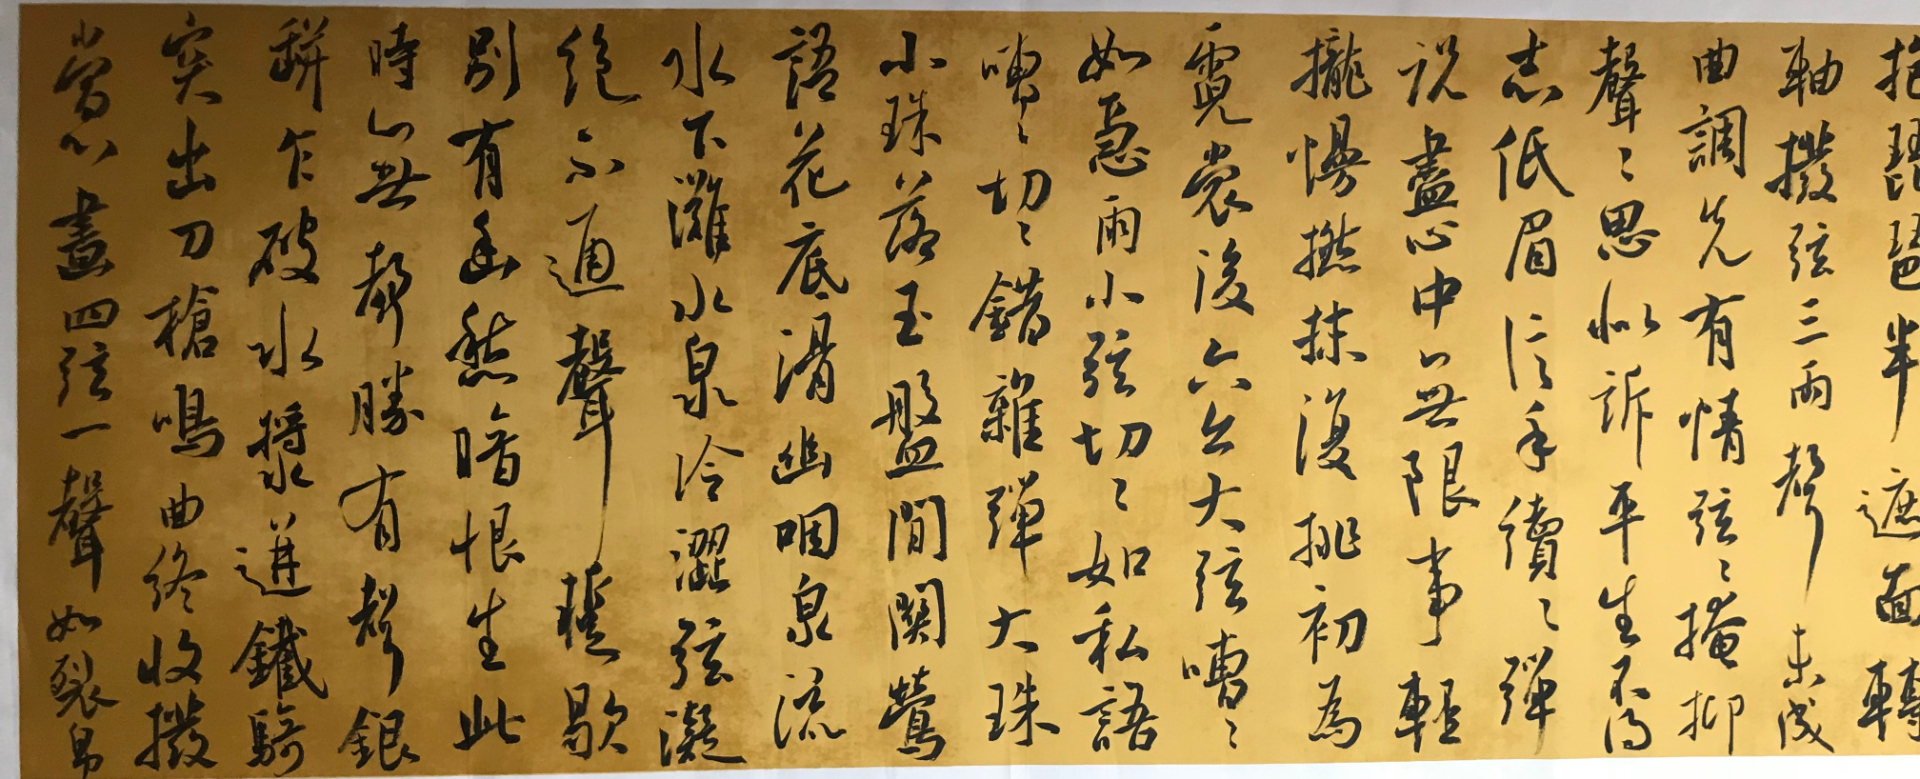 抱琵琶半遮面轉
軸撥弦三兩聲未成
曲調先有情弦〻掩抑
聲〻思似訴平生不得
志低眉信手續〻彈
說盡心中無限事輕
攏慢撚抹復挑初為
霓裳後六幺大弦嘈〻
如急雨小弦切〻如私語
嘈〻切〻錯雜彈大珠
小珠落玉盤間關鶯
語花底滑幽咽泉流
水下灘水泉冷澀弦凝
絕不通聲暫歇
別有幽愁暗恨生此
時無聲勝有聲銀
缾乍破水漿迸鐵騎
突出刀槍鳴曲終收撥
當心畫四弦一聲如裂帛